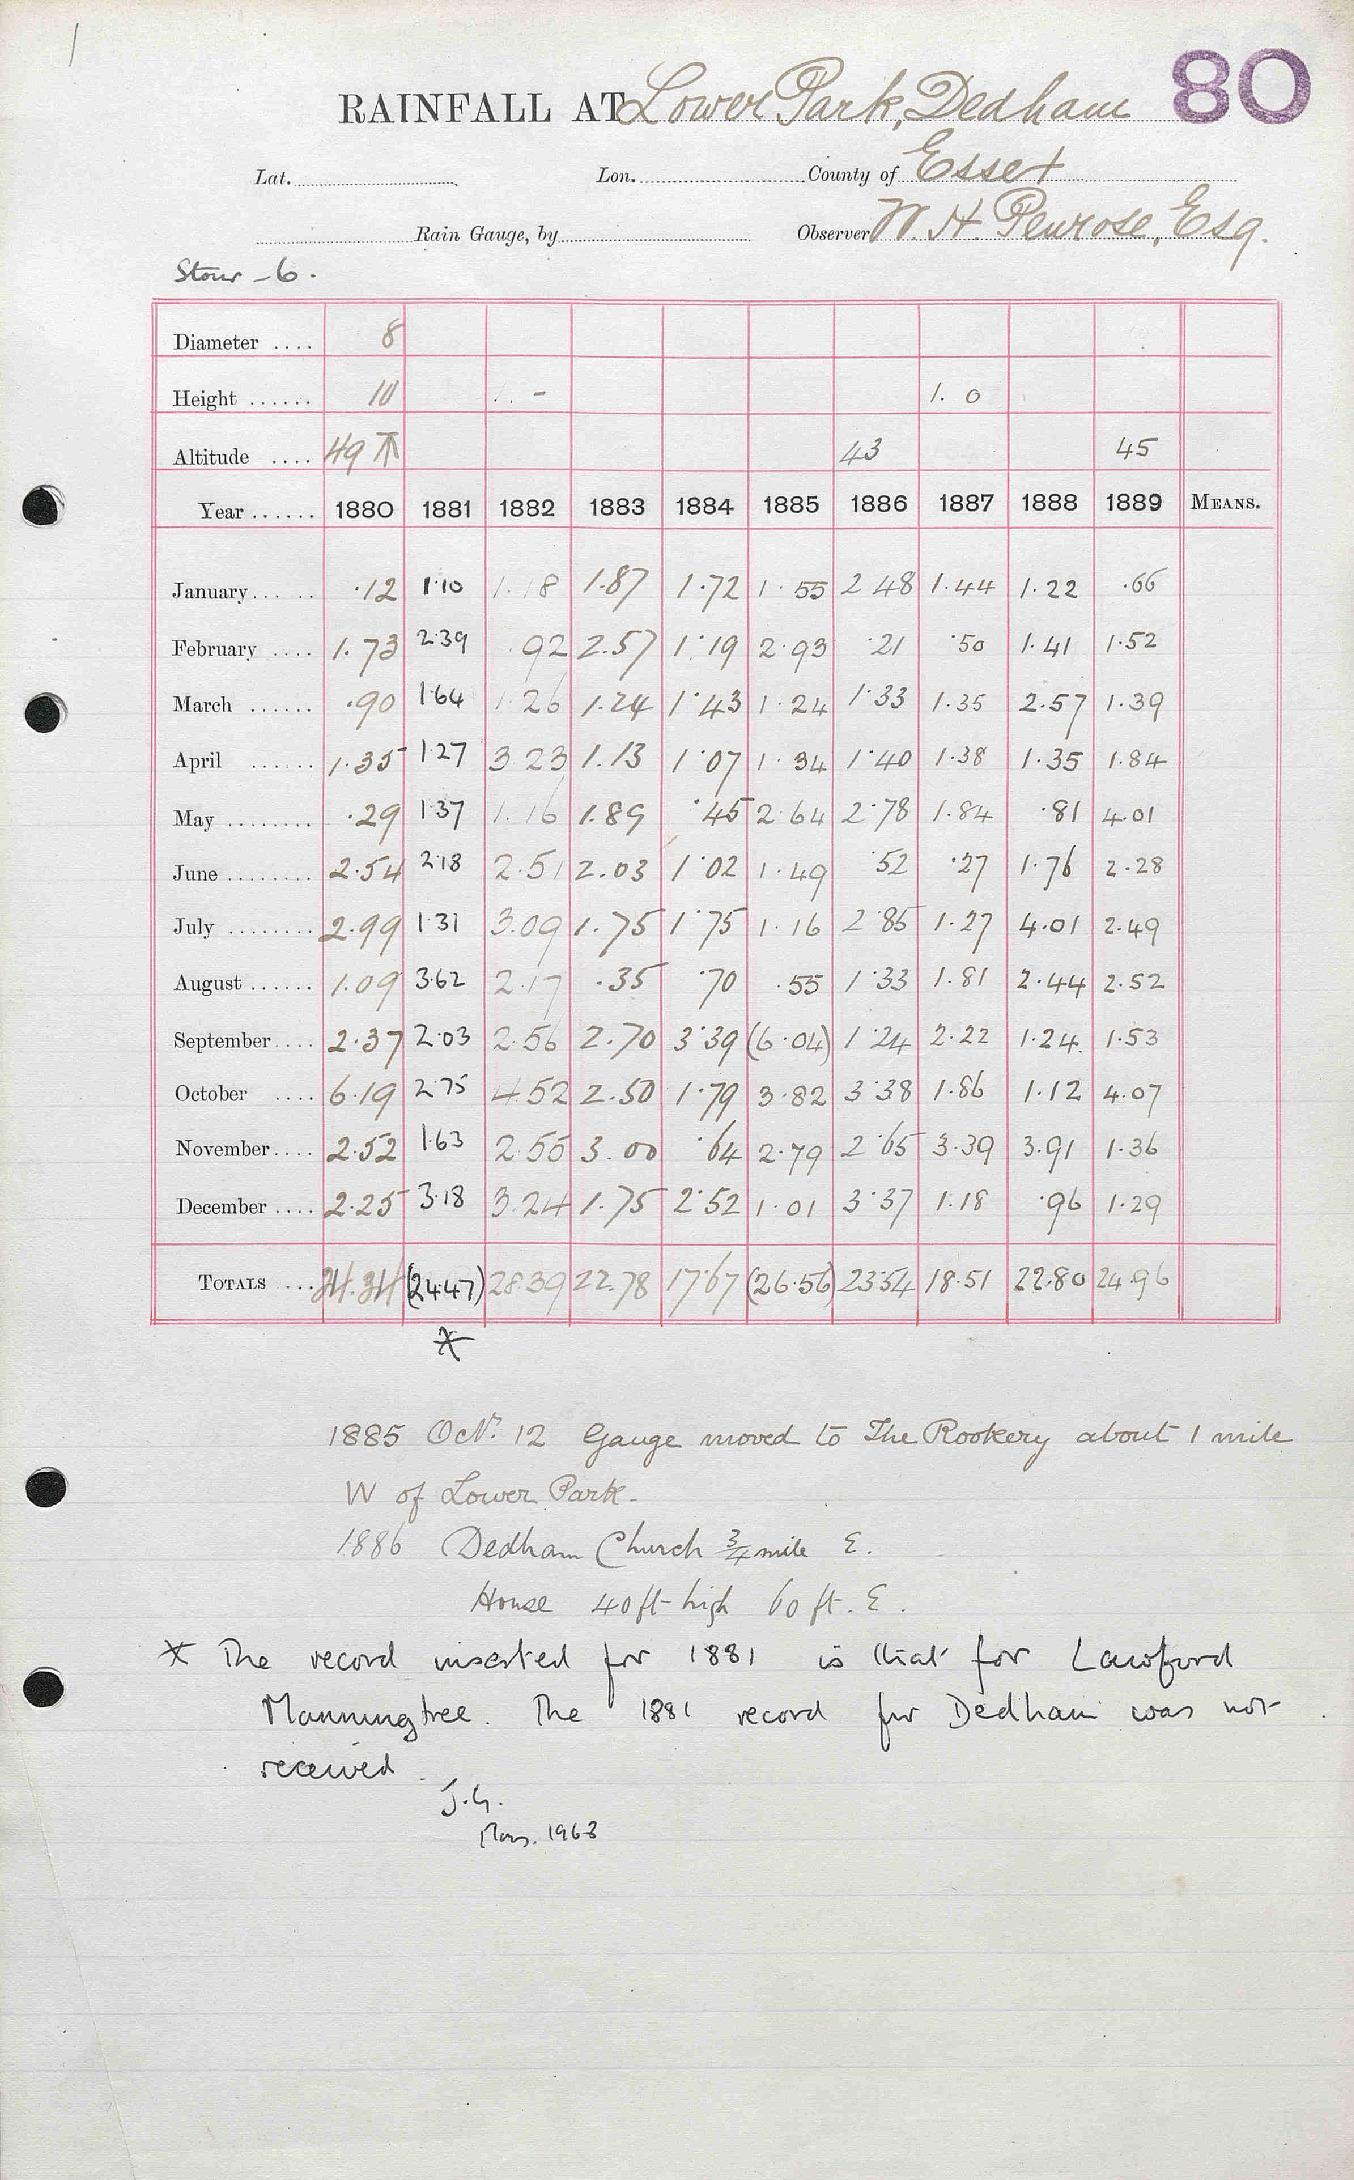 80
RAINFALL AT Lower Park, Dedham
Lat. Lon. County of Essex
Rain Gauge, by Observer W. H. Penrose, Esq.
Stour - 6.
Diameter .... 8
Height ...... 10 1. - 1. 0
Altitude .... 49 43 45
Year ...... 1880 1881 1882 1883 1884 1885 1886 1887 1888 1889 MEANS.
January ...... .12 1.10 1.18 1.87 1.72 1.55 2.48 1.44 1.22 .66
February .... 1.73 2.39 .92 2.57 1.19 2.93 .21 .50 1.41 1.52
March ...... .90 1.64 1.26 1.24 1.43 1.24 1.33 1.35 2.57 1.39
April ...... 1.35 1.27 3.23 1.13 1.07 1.34 1.40 1.38 1.35 1.84
May ........ .29 1.37 1.16 1.89 .45 2.64 2.78 1.84 .81 4.01
June ........ 2.54 2.18 2.51 2.03 1.02 1.49 .52 .27 1.76 2.28
July ........ 2.99 1.31 3.09 1.75 1.75 1.16 2.85 1.27 4.01 2.49
August ...... 1.09 3.62 2.17 .35 .70 .55 1.33 1.81 2.44 2.52
September .... 2.37 2.03 2.56 2.70 3.39 (6.04) 1.24 2.22 1.24 1.53
October .... 6.19 2.75 4.52 2.50 1.79 3.82 3.38 1.86 1.12 4.07
November .... 2.52 1.63 2.55 3.00 .64 2.79 2.65 3.39 3.91 1.36
December .... 2.25 3.18 3.24 1.75 2.52 1.01 3.37 1.18 .96 1.29
TOTALS .... 24.34 (24.47) 28.39 22.78 17.67 (26.56) 23.54 18.51 22.80 24.96
*
1885 Octr. 12 Gauge moved to The Rookery about 1 mile
W of Lower Park.
1886 Dedham Church 3/4 mile E.
House 40 ft high 60 ft. E.
* The record inserted for 1881 is that for Lawford
Manningtree. The 1881 record for Dedham was not
received.
J.G.
1963